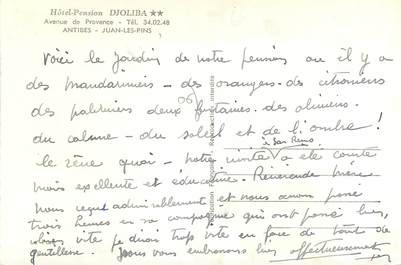 Hôtel-Pension DJOLIBA ★★
Avenue de Provence - Tél. 34.02.48
ANTIBES - JUAN-LES-PINS
Voici le jardin de notre pension ou il y a
des mandariniers - des orangers - des citronniers
des palmiers deux fontaines - des oliviers -
du calme - du soleil et de l'ombre !
à San Remo
le rêve quoi - notre visite a été courte
mais excellente et éducative. Révérende Mère
nous reçut admirablement et nous avons passé
trois heures en sa compagnie qui ont passé bien
vite je dirais trop vite en face de tant de
gentillesse. Nous vous embrassons bien affectueusement
Reproduction Interdite